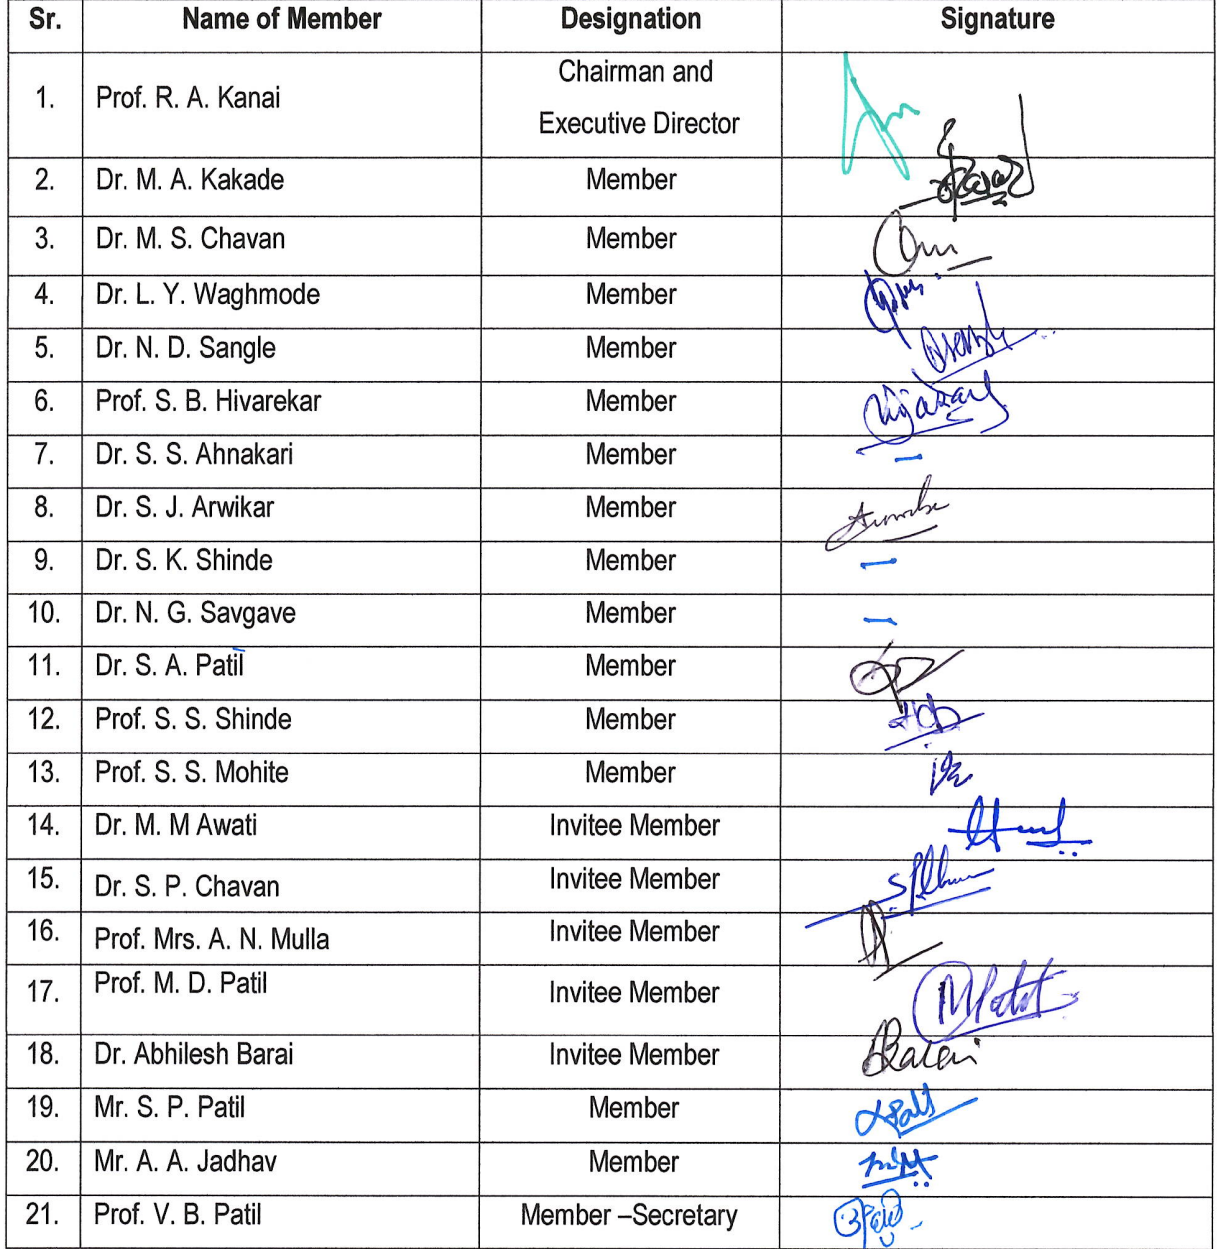 Sr. Name of Member Designation Signature
1. Prof. R. A. Kanai Chairman and
Executive Director
2. Dr. M. A. Kakade Member
3. Dr. M. S. Chavan Member
4. Dr. L. Y. Waghmode Member
5. Dr. N. D. Sangle Member
6. Prof. S. B. Hivarekar Member
7. Dr. S. S. Ahnakari Member –
8. Dr. S. J. Arwikar Member
9. Dr. S. K. Shinde Member –
10. Dr. N. G. Savgave Member –
11. Dr. S. A. Patil Member
12. Prof. S. S. Shinde Member
13. Prof. S. S. Mohite Member
14. Dr. M. M Awati Invitee Member
15. Dr. S. P. Chavan Invitee Member
16. Prof. Mrs. A. N. Mulla Invitee Member
17. Prof. M. D. Patil Invitee Member MPatil
18. Dr. Abhilesh Barai Invitee Member
19. Mr. S. P. Patil Member
20. Mr. A. A. Jadhav Member
21. Prof. V. B. Patil Member –Secretary